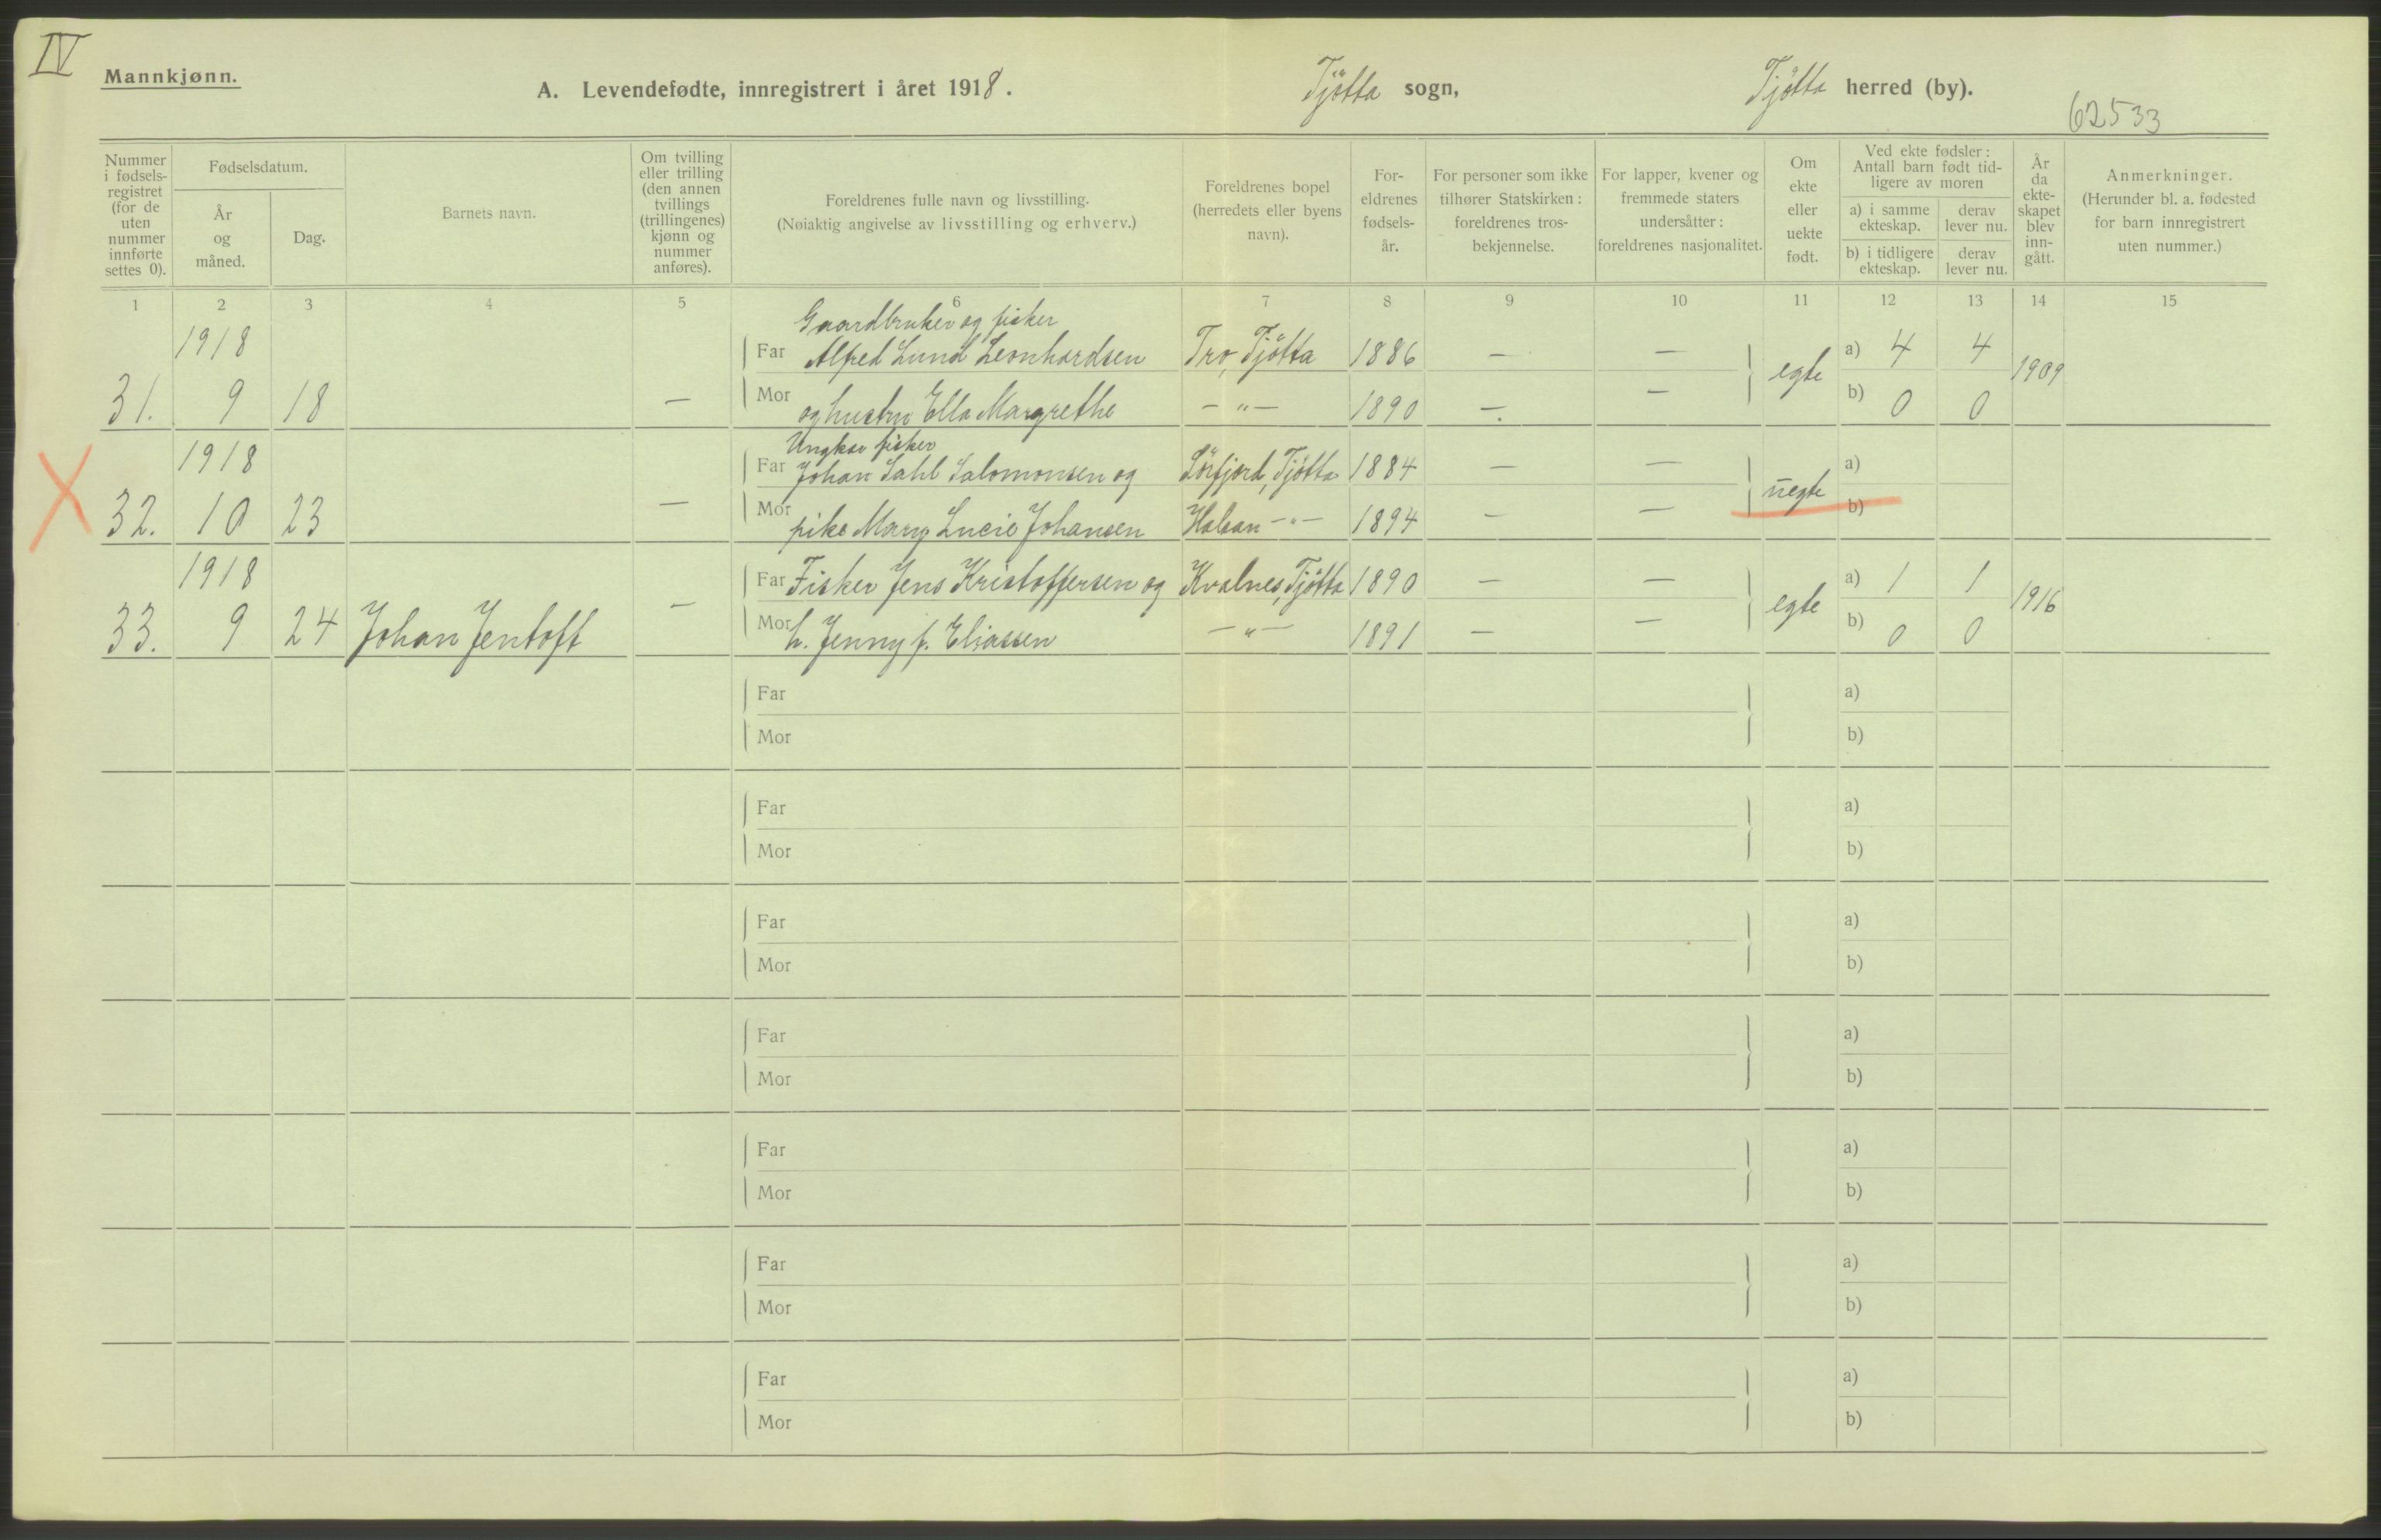 IV
Mannkjønn.
A. Levendefødte, innregistrert i året 1918.
Tjötta sogn,
Tjötta herred (by).
62533
Nummer i fødsels-registret (for de uten nummer innførte settes 0).
Fødselsdatum.
År og måned.
Dag.
Barnets navn.
Om tvilling eller trilling (den annen tvillings (trillingenes) kjønn og nummer anføres).
Foreldrenes fulle navn og livsstilling.
(Nøiaktig angivelse av livsstilling og erhverv.)
Foreldrenes bopel (herredets eller byens navn).
For-eldrenes fødsels-år.
For personer som ikke tilhører Statskirken: foreldrenes tros-bekjennelse.
For lapper, kvener og fremmede staters undersåtter: foreldrenes nasjonalitet.
Om ekte eller uekte født.
Ved ekte fødsler: Antall barn født tid-ligere av moren
a) i samme ekteskap.
derav lever nu.
b) i tidligere ekteskap.
derav lever nu.
År da ekte-skapet blev inn-gått.
Anmerkninger.
(Herunder bl. a. fødested for barn innregistrert uten nummer.)
1 2 3 4 5 6 7 8 9 10 11 12 13 14 15
Gaardbruker og fisker
1918 Far Alfred Lund Leonhardsen Tro, Tjötta 1886 — — egte a) 4 4 1909
31. 9 18 — Mor og hustru Ella Margrethe — " — 1890 — — b) 0 0
Ungkar fisker
1918 Far Johan Dahl Salomonsen og Sörfjord, Tjötta 1884 — — uegte a)
32. 10 23 — Mor pike Mary Lucie Johansen Halsan — " — 1894 — — b)
1918 Far Fisker Jens Kristoffersen og Kvalnes, Tjötta 1890 — — egte a) 1 1 1916
33. 9 24 Johan Jentoft — Mor h. Jenny f. Eliassen — " — 1891 — — b) 0 0
Far a)
Mor b)
Far a)
Mor b)
Far a)
Mor b)
Far a)
Mor b)
Far a)
Mor b)
Far a)
Mor b)
Far a)
Mor b)